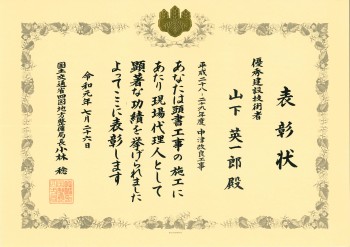 表彰状
優秀建設技術者
山下英一郎殿
平成二十八-二十九年度 中津改良工事
あなたは頭書工事の施工に
あたり現場代理人として
顕著な功績を挙げられました
よってここに表彰します
令和元年七月二十六日
国土交通省四国地方整備局長 小林稔